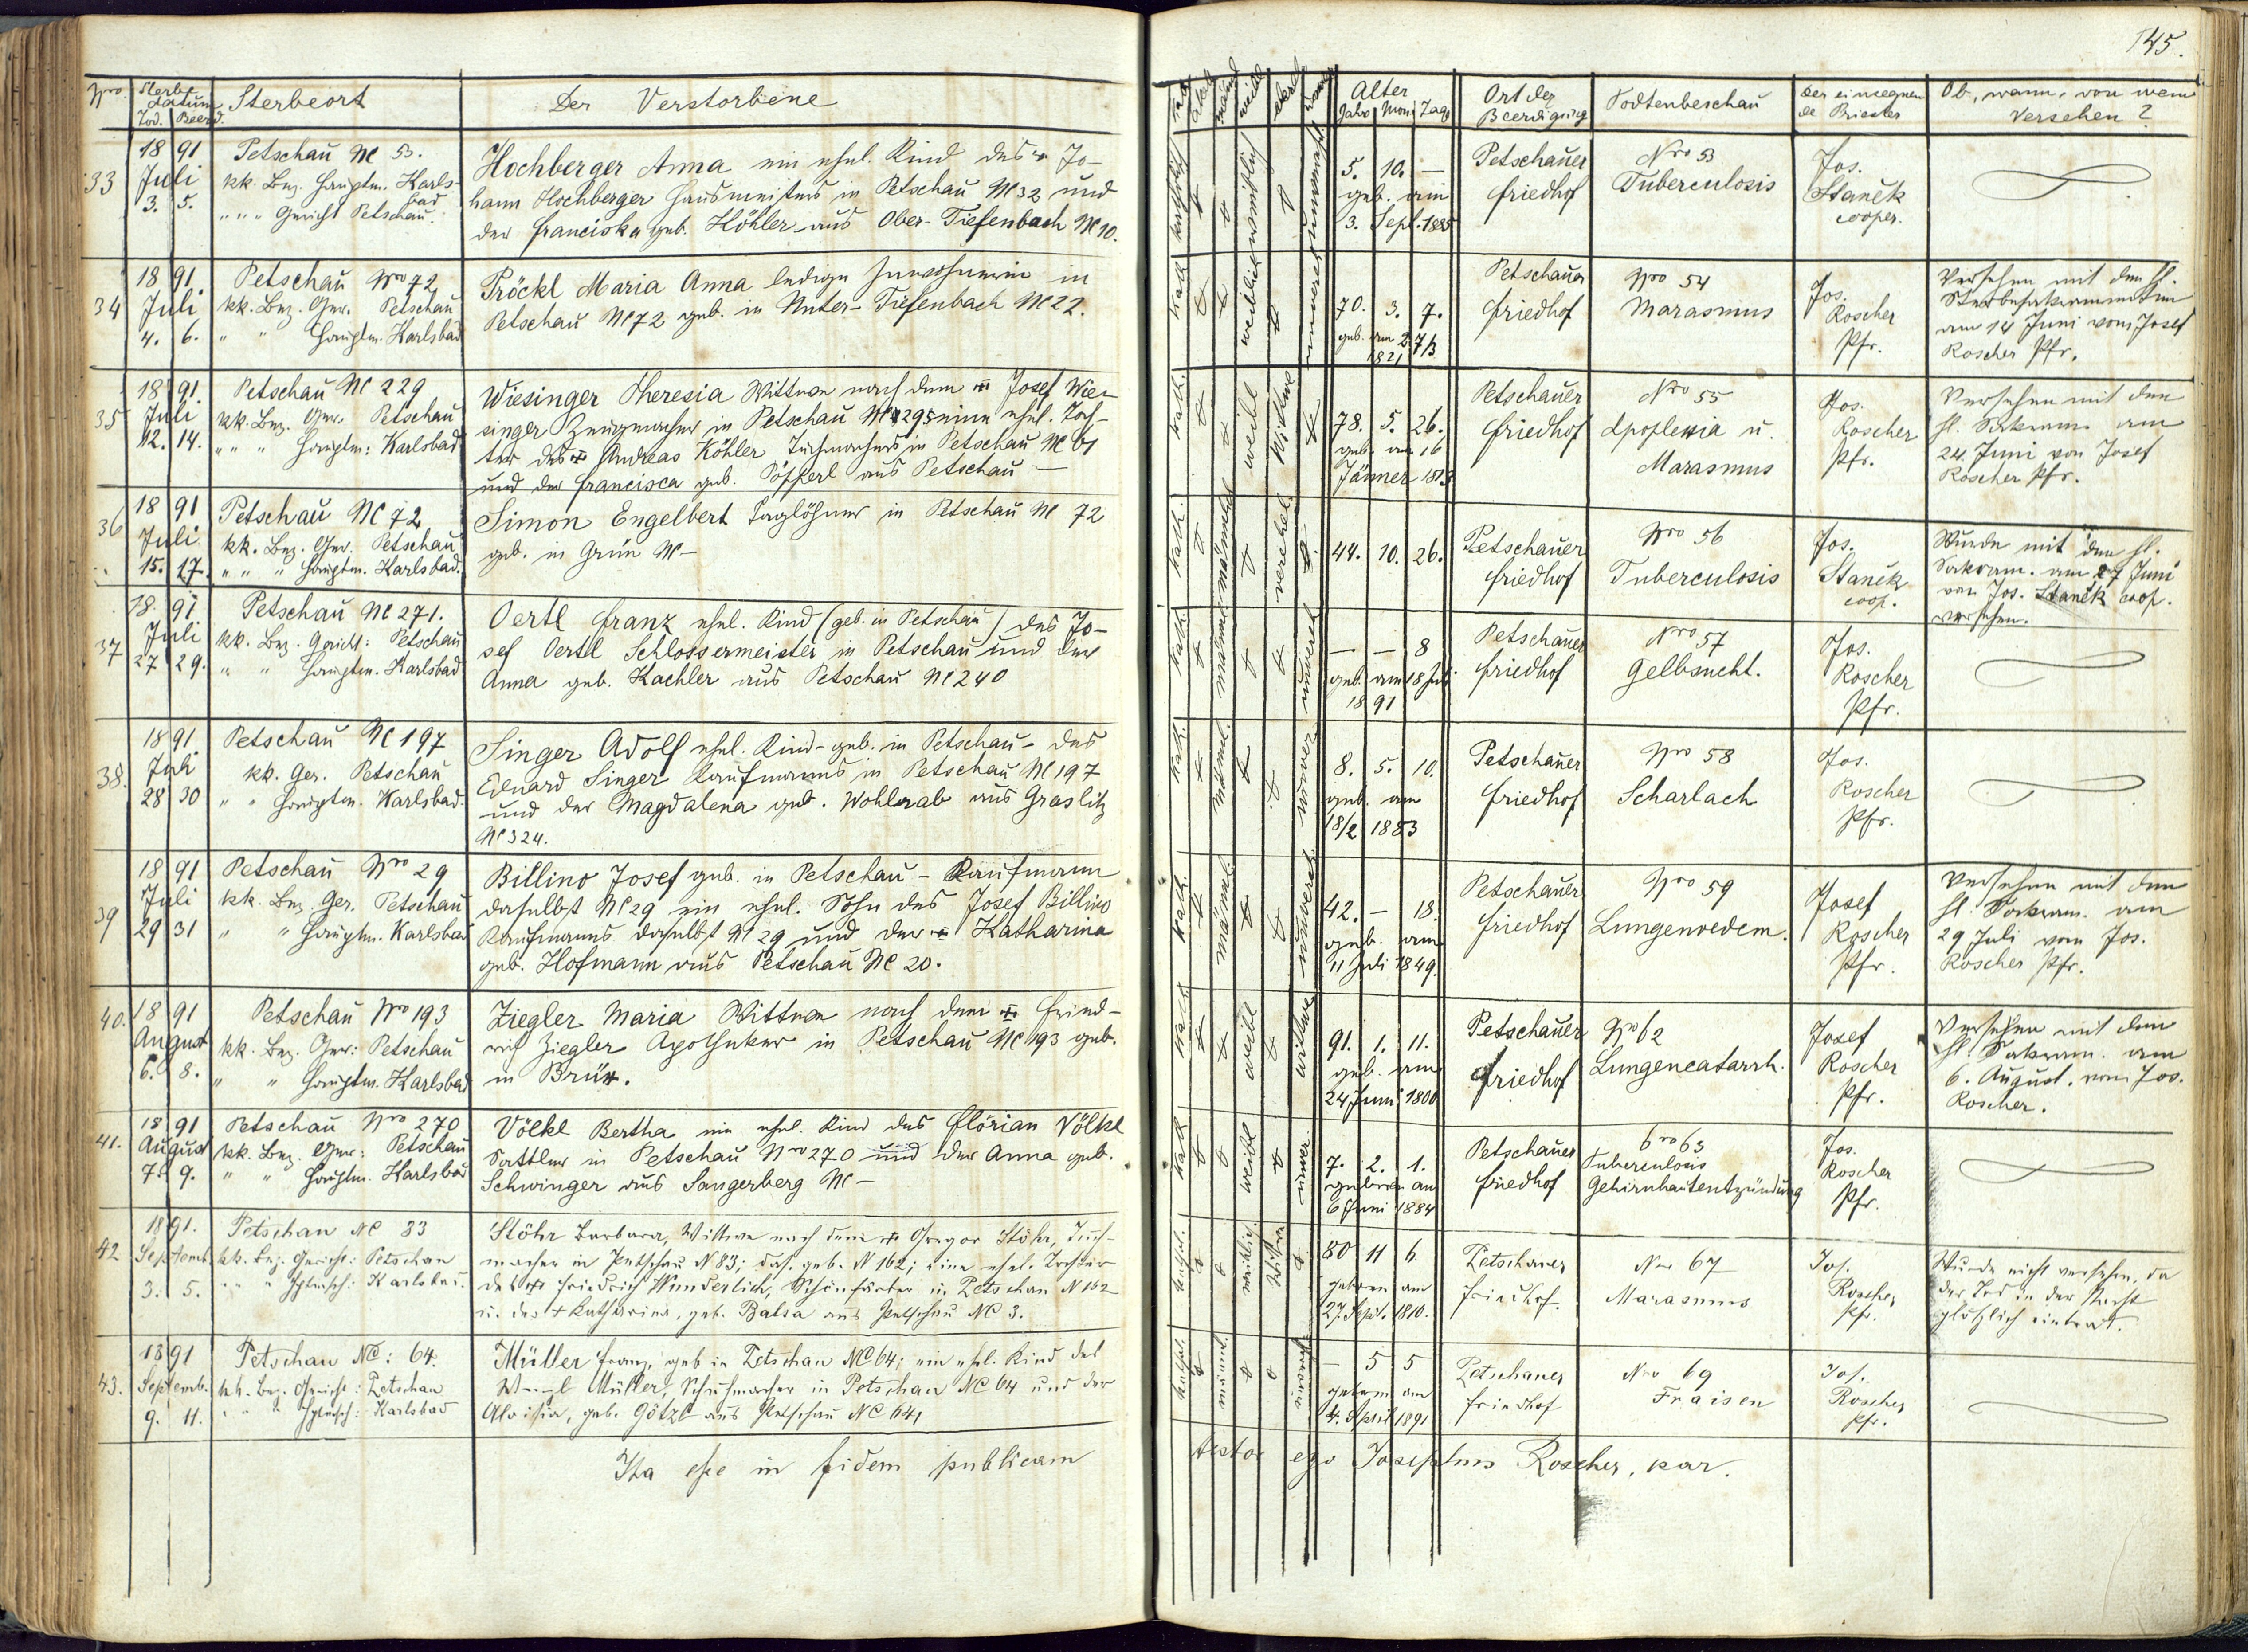 145.
Nro
Sterbe
datum
Tod. Beerd.
Sterbeort
Der Verstorbene
33
18 91
Juli
3. 5.
Petschau NC 53.
kk. Bez. Hauptm. Karls-
bad
" " " Gericht Petschau.
Hochberger Anna ein ehel. Kind des Jo-
hann Hochberger Hausmeisters in Petschau NC 32 und
der Franciska geb. Köhler aus Ober-Tiefenbach NC 10.
34
18 91.
Juli
4. 6.
Petschau Nro 72
kk. Bez. Ger. Petschau
" " Hauptm. Karlsbad
Pröckl Maria Anna ledige Inwohnerin in
Petschau NC 72 geb. in Unter-Tiefenbach NC 22.
35
18 91.
Juli
12. 14.
Petschau NC 229
kk. Bez. Ger. Petschau
" " " Hauptm: Karlsbad
Wiesinger Theresia Wittwe nach dem Josef Wie-
singer Zeugmacher in Petschau NC 229 eine ehel. Toch-
ter des Andreas Köhler Tuchmachers in Petschau NC 61
und der Francisca geb. Pöpperl aus Petschau —
36
18 91
Juli
15. 17.
Petschau NC 72
kk. Bez. Ger. Petschau
" " " Hauptm. Karlsbad.
Simon Engelbert Taglöhner in Petschau NC 72
geb. in Grün NC —
37
18. 91
Juli
27 29.
Petschau NC 271.
kk. Bez. Gericht: Petschau
" " Hauptm. Karlsbad
Oertl Franz ehel. Kind (geb. in Petschau) des Jo-
sef Oertl Schlossermeister in Petschau und der
Anna geb. Kachler aus Petschau NC 240
38.
18 91.
Juli
28 30
Petschau NC 197
kk. Ger. Petschau
" " Hauptm. Karlsbad.
Singer Adolf ehel. Kind - geb. in Petschau - des
Eduard Singer Kaufmanns in Petschau NC 197
und der Magdalena geb. Wohlrab aus Graslitz
NC 324.
39
18 91
Juli
29 31
Petschau Nro 29
kk. Bez. Ger. Petschau
" " Hauptm. Karlsbad
Billino Josef geb. in Petschau - Kaufmann
daselbst NC 29 ein ehel. Sohn des Josef Billino
Kaufmanns daselbst NC 29 und der Katharina
geb. Hofmann aus Petschau NC 20.
40.
18 91
August
6. 8.
Petschau Nro 193
kk. Bez. Ger: Petschau
" " Hauptm. Karlsbad
Ziegler Maria Wittwe nach dem Fried-
rich Ziegler Apotheker in Petschau NC 193 geb.
in Brüx.
41.
18 91
August
7. 9.
Petschau Nro 270
kk. Bez. Ger: Petschau
" " Hauptm. Karlsbad
Völkl Bertha ein ehel. Kind des Florian Völkl
Sattler in Petschau Nro 270 und der Anna geb.
Schwinger aus Sangerberg NC —
42
18 91.
Septemb.
3. 5.
Petschau NC 83
kk. Bez. Gericht: Petschau
Karlsbad.
Stöhr Barbara, Wittwe nach dem Gregor Stöhr, Tuch-
macher in Petschau N 83; das. geb. N 162; eine ehel. Tochter
des Friedrich Wunderlich, Schönfärber in Petschau N 162
u. der Katharina, geb. Balsa aus Petschau NC 3.
43.
1891
Septemb.
9. 11.
Petschau NC: 64.
kk. Bez. Gericht: Petschau
Karlsbad
Müller Franz, geb in Petschau NC 64; ein ehel. Kind des
Müller, Schuhmacher in Petschau NC 64 und der
Aloisia, geb. Götzl aus Petschau NC 64,
Ita esse in fidem publicam
Alter
Jahr Mon Tage
Ort der
Beerdigung
Todtenbeschau
Der einsegnen
de Priester
Ob, wann, von wem
Versehen?
5. 10. —
geb. am
3. Sept. 1885
Petschauer
Friedhof
Nro 53
Tuberculosis
Jos.
Staněk
cooper.
70. 3. 7.
geb. am 27/3
1821
Petschauer
Friedhof
Nro 54
Marasmus
Jos.
Roscher
Pfr.
Versehen mit den hl.
Sterbesakramenten
am 14 Juni vom Josef
Roscher Pfr.
78. 5. 26.
geb. am 16
Jänner 1813
Petschauer
Friedhof
Nro 55
Apoplexia u.
Marasmus
Jos.
Roscher
Pfr.
Versehen mit den
hl. Sakram. am
24. Juni von Josef
Roscher Pfr.
44. 10. 26.
Petschauer
Friedhof
Nro 56
Tuberculosis
Jos.
Staněk
coop.
Wurde mit den hl.
Sakram. am 27 Juni
von Jos. Staněk coop.
versehen.
— — 8
geb. am 18 Juli
18 91
Petschauer
Friedhof
Nro 57
Gelbsucht.
Jos.
Roscher
Pfr.
8. 5. 10.
geb. am
18/2 1883
Petschauer
Friedhof
Nro 58
Scharlach
Jos.
Roscher
Pfr.
42. — 18.
geb. am
11 Juli 1849.
Petschauer
Friedhof
Nro 59
Lungenoedem.
Josef
Roscher
Pfr.
Versehen mit den
hl. Sakram. am
29 Juli vom Jos.
Roscher Pfr.
91. 1. 11.
geb. am
24 Juni 1800
Petschauer
Friedhof
Nro 62
Lungencatarrh.
Josef
Roscher
Pfr.
Versehen mit den
hl. Sakram. am
6. August. vom Jos.
Roscher.
7. 2. 1.
geboren am
6 Juni 1884
Petschauer
Friedhof
Nro 63
Tuberculosis
Gehirnhautentzündung
Jos.
Roscher
Pfr.
80 11 6
geboren am
27. Sept. 1810.
Petschauer
Friedhof.
Nro 67
Marasmus
Jos.
Roscher
Pfr.
Wurde nicht versehen, da
der Tod in der Nacht
plötzlich eintrat.
— 5 5
geboren am
4. April 1891
Petschauer
Friedhof
Nro 69
Fraisen
Jos.
Roscher
Pfr.
testor ego Josephus Roscher, par.